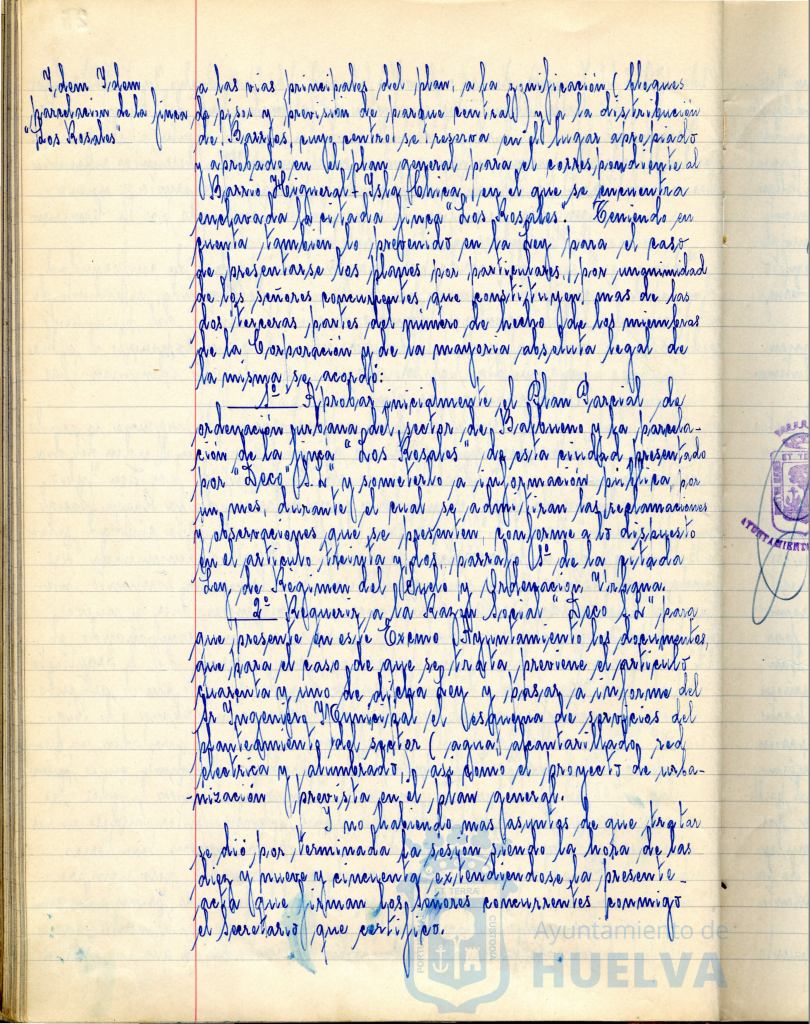 Idem Idem
parcelacion de la finca
"Los Rosales"
a las vias principales del plan, a la zonificación (bloques
de pisos y previsión de parque central) y a la distribución
de Barrios, cuyo centro se reserva en el lugar apropiado
y aprobado en el plan general para el correspondiente al
Barrio Higueral-Isla Chica, en el que se encuentra
enclavada la citada finca "Los Rosales". Teniendo en
cuenta tambien lo prevenido en la Ley para el caso
de presentarse los planes por particulares, por unanimidad
de los señores concurrentes que constituyen mas de las
dos terceras partes del número de hecho de los miembros
de la Corporación y de la mayoria absoluta legal de
la misma, se acordó:
1º Aprobar inicialmente el Plan Parcial de
ordenación urbana del sector de Balbueno y la parcela-
ción de la finca "Los Rosales" de esta ciudad presentado
por "Deco S.L" y someterlo a información publica, por
un mes, durante el cual se admitiran las reclamaciones
y observaciones que se presenten, conforme a lo dispuesto
en el articulo treinta y dos, parrafo 1º de la citada
Ley de Regimen del Suelo y Ordenación Urbana.
2º Requerir a la Razon Social "Deco S.L" para
que presente en este Excmo Ayuntamiento los documentos,
que para el caso de que se trata previene el articulo
cuarenta y uno de dicha Ley y pasar a informe del
Sr Ingeniero Municipal el esquema de servicios del
planteamiento del sector (agua, alcantarillado, red
electrica y alumbrado,) asi como el proyecto de urba-
-nización prevista en el plan general.
Y no habiendo mas asuntos de que tratar
se dió por terminada la sesión siendo la hora de las
diez y nueve y cincuenta extendiendose la presente
acta que firman los señores concurrentes conmigo
el secretario que certifico.
AYUNTAMIENTO
Ayuntamiento de
HUELVA